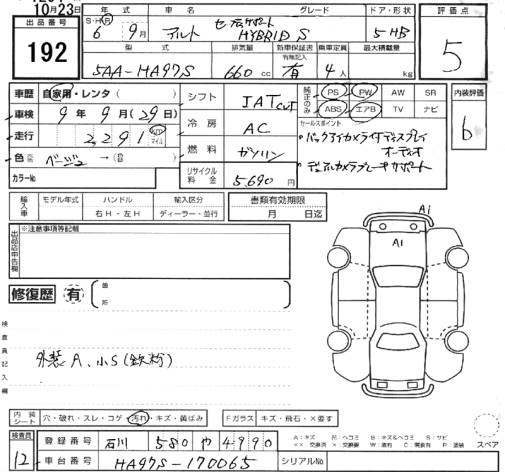 10月23日
出品番号
192
年式 車名 グレード ドア・形状 評価点
S・H・R
6 9月 アルト セーフティサポート HYBRID S 5 HB 5
型式 排気量 新車保証書 乗車定員 最大積載量
有無記入
5AA-HA97S 660 cc 有 4人 kg
車歴 自家用・レンタ( )
車検 9年9月(29日)
走行 2,291 km マイル
色 ベージュ →( )
カラーNo
シフト IAT CVT
冷房 AC
燃料 ガソリン
リサイクル料金 5,690円
純正のみ PS PW AW SR
ABS エアB TV ナビ
内装評価
b
セールスポイント
・バックアイカメラ付ディスプレイ
オーディオ
・デュアルカメラブレーキサポート
輸入車 モデル年式 ハンドル 輸入区分 書類有効期限
右H・左H ディーラー・並行 月 日迄
出品店申告欄
※注意事項等記載
修復歴 有 箇所
検査員記入欄
外装 A、小S(鉄粉)
A1
A1
内装シート 穴・破れ・スレ・コゲ・汚れ・キズ・黄ばみ
Fガラス キズ・飛石・×要す
スペア
検査員
12
登録番号 石川 580 や 4990
車台番号 HA97S-170065
シリアルNo
A:キズ
××交換済